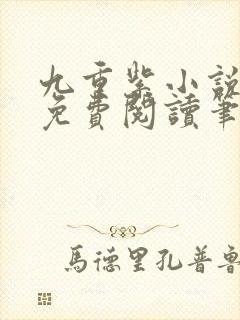 九重紫小說
免費閱讀筆
馬德里孔普魯